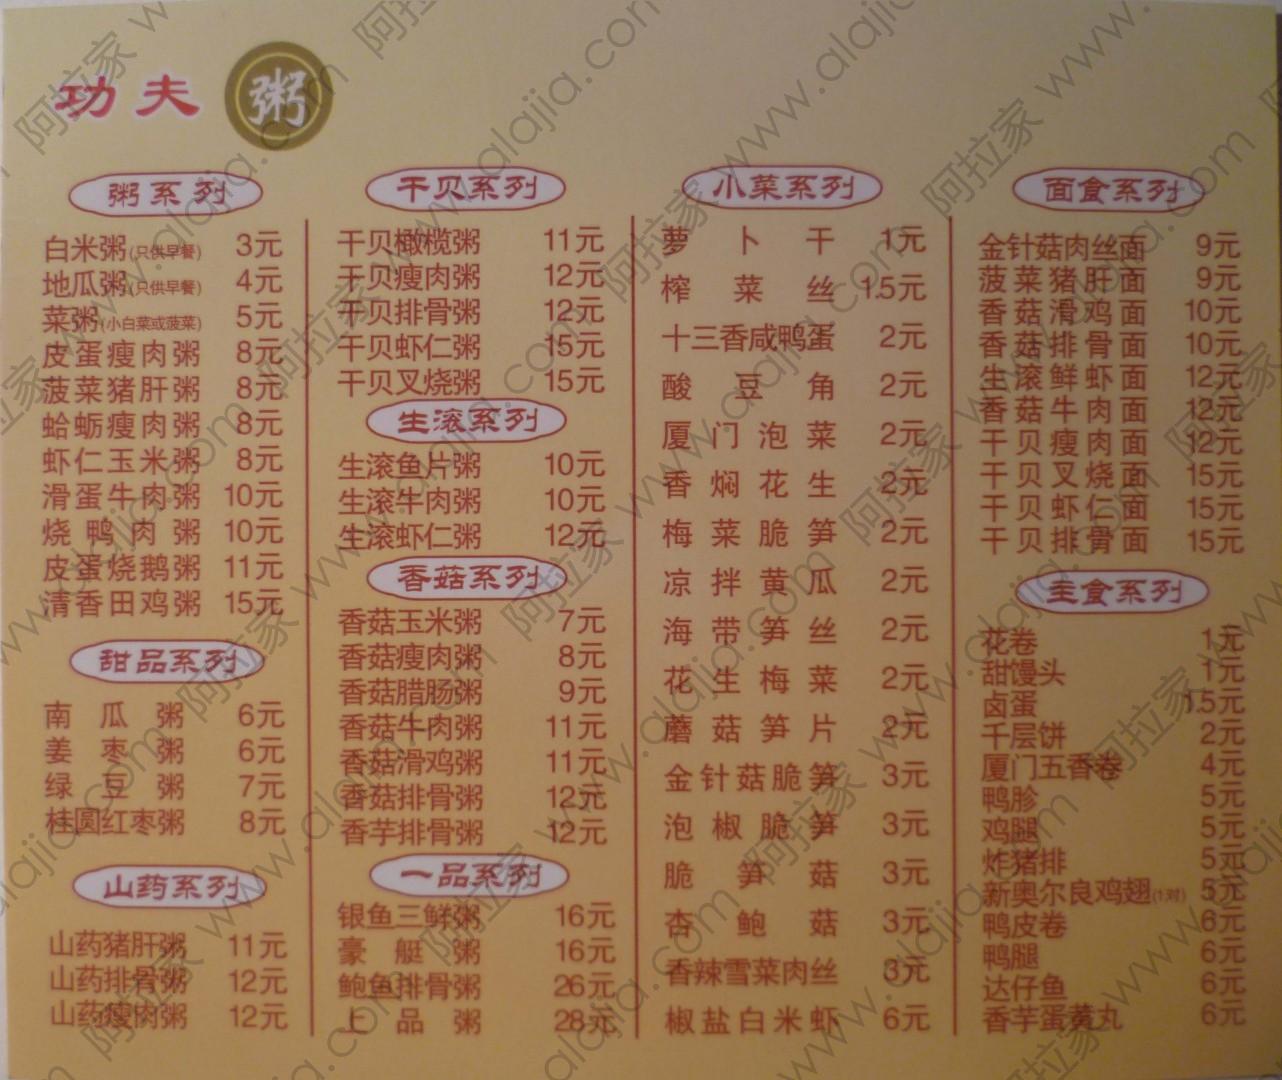 功夫粥
粥系列
白米粥(只供早餐) 3元
地瓜粥(只供早餐) 4元
菜粥(小白菜或菠菜) 5元
皮蛋瘦肉粥 8元
菠菜猪肝粥 8元
蛤蛎瘦肉粥 8元
虾仁玉米粥 8元
滑蛋牛肉粥 10元
烧鸭肉粥 10元
皮蛋烧鹅粥 11元
清香田鸡粥 15元
甜品系列
南瓜粥 6元
姜枣粥 6元
绿豆粥 7元
桂圆红枣粥 8元
山药系列
山药猪肝粥 11元
山药排骨粥 12元
山药瘦肉粥 12元
干贝系列
干贝橄榄粥 11元
干贝瘦肉粥 12元
干贝排骨粥 12元
干贝虾仁粥 15元
干贝叉烧粥 15元
生滚系列
生滚鱼片粥 10元
生滚牛肉粥 10元
生滚虾仁粥 12元
香菇系列
香菇玉米粥 7元
香菇瘦肉粥 8元
香菇腊肠粥 9元
香菇牛肉粥 11元
香菇滑鸡粥 11元
香菇排骨粥 12元
香芋排骨粥 12元
一品系列
银鱼三鲜粥 16元
豪艇粥 16元
鲍鱼排骨粥 26元
上品粥 28元
小菜系列
萝卜干 1元
榨菜丝 1.5元
十三香咸鸭蛋 2元
酸豆角 2元
厦门泡菜 2元
香焖花生 2元
梅菜脆笋 2元
凉拌黄瓜 2元
海带笋丝 2元
花生梅菜 2元
蘑菇笋片 2元
金针菇脆笋 3元
泡椒脆笋 3元
脆笋菇 3元
杏鲍菇 3元
香辣雪菜肉丝 3元
椒盐白米虾 6元
面食系列
金针菇肉丝面 9元
菠菜猪肝面 9元
香菇滑鸡面 10元
香菇排骨面 10元
生滚鲜虾面 12元
香菇牛肉面 12元
干贝瘦肉面 12元
干贝叉烧面 15元
干贝虾仁面 15元
干贝排骨面 15元
主食系列
花卷 1元
甜馒头 1元
卤蛋 1.5元
千层饼 2元
厦门五香卷 4元
鸭胗 5元
鸡腿 5元
炸猪排 5元
新奥尔良鸡翅(1对) 5元
鸭皮卷 6元
鸭腿 6元
达仔鱼 6元
香芋蛋黄丸 6元
阿拉家 www.alajia.com